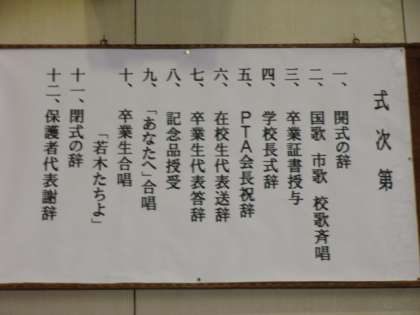 式次第
一、開式の辞
二、国歌 市歌 校歌斉唱
三、卒業証書授与
四、学校長式辞
五、PTA会長祝辞
六、在校生代表送辞
七、卒業生代表答辞
八、記念品授受
九、「あなたへ」合唱
十、卒業生合唱
「若木たちよ」
十一、閉式の辞
十二、保護者代表謝辞